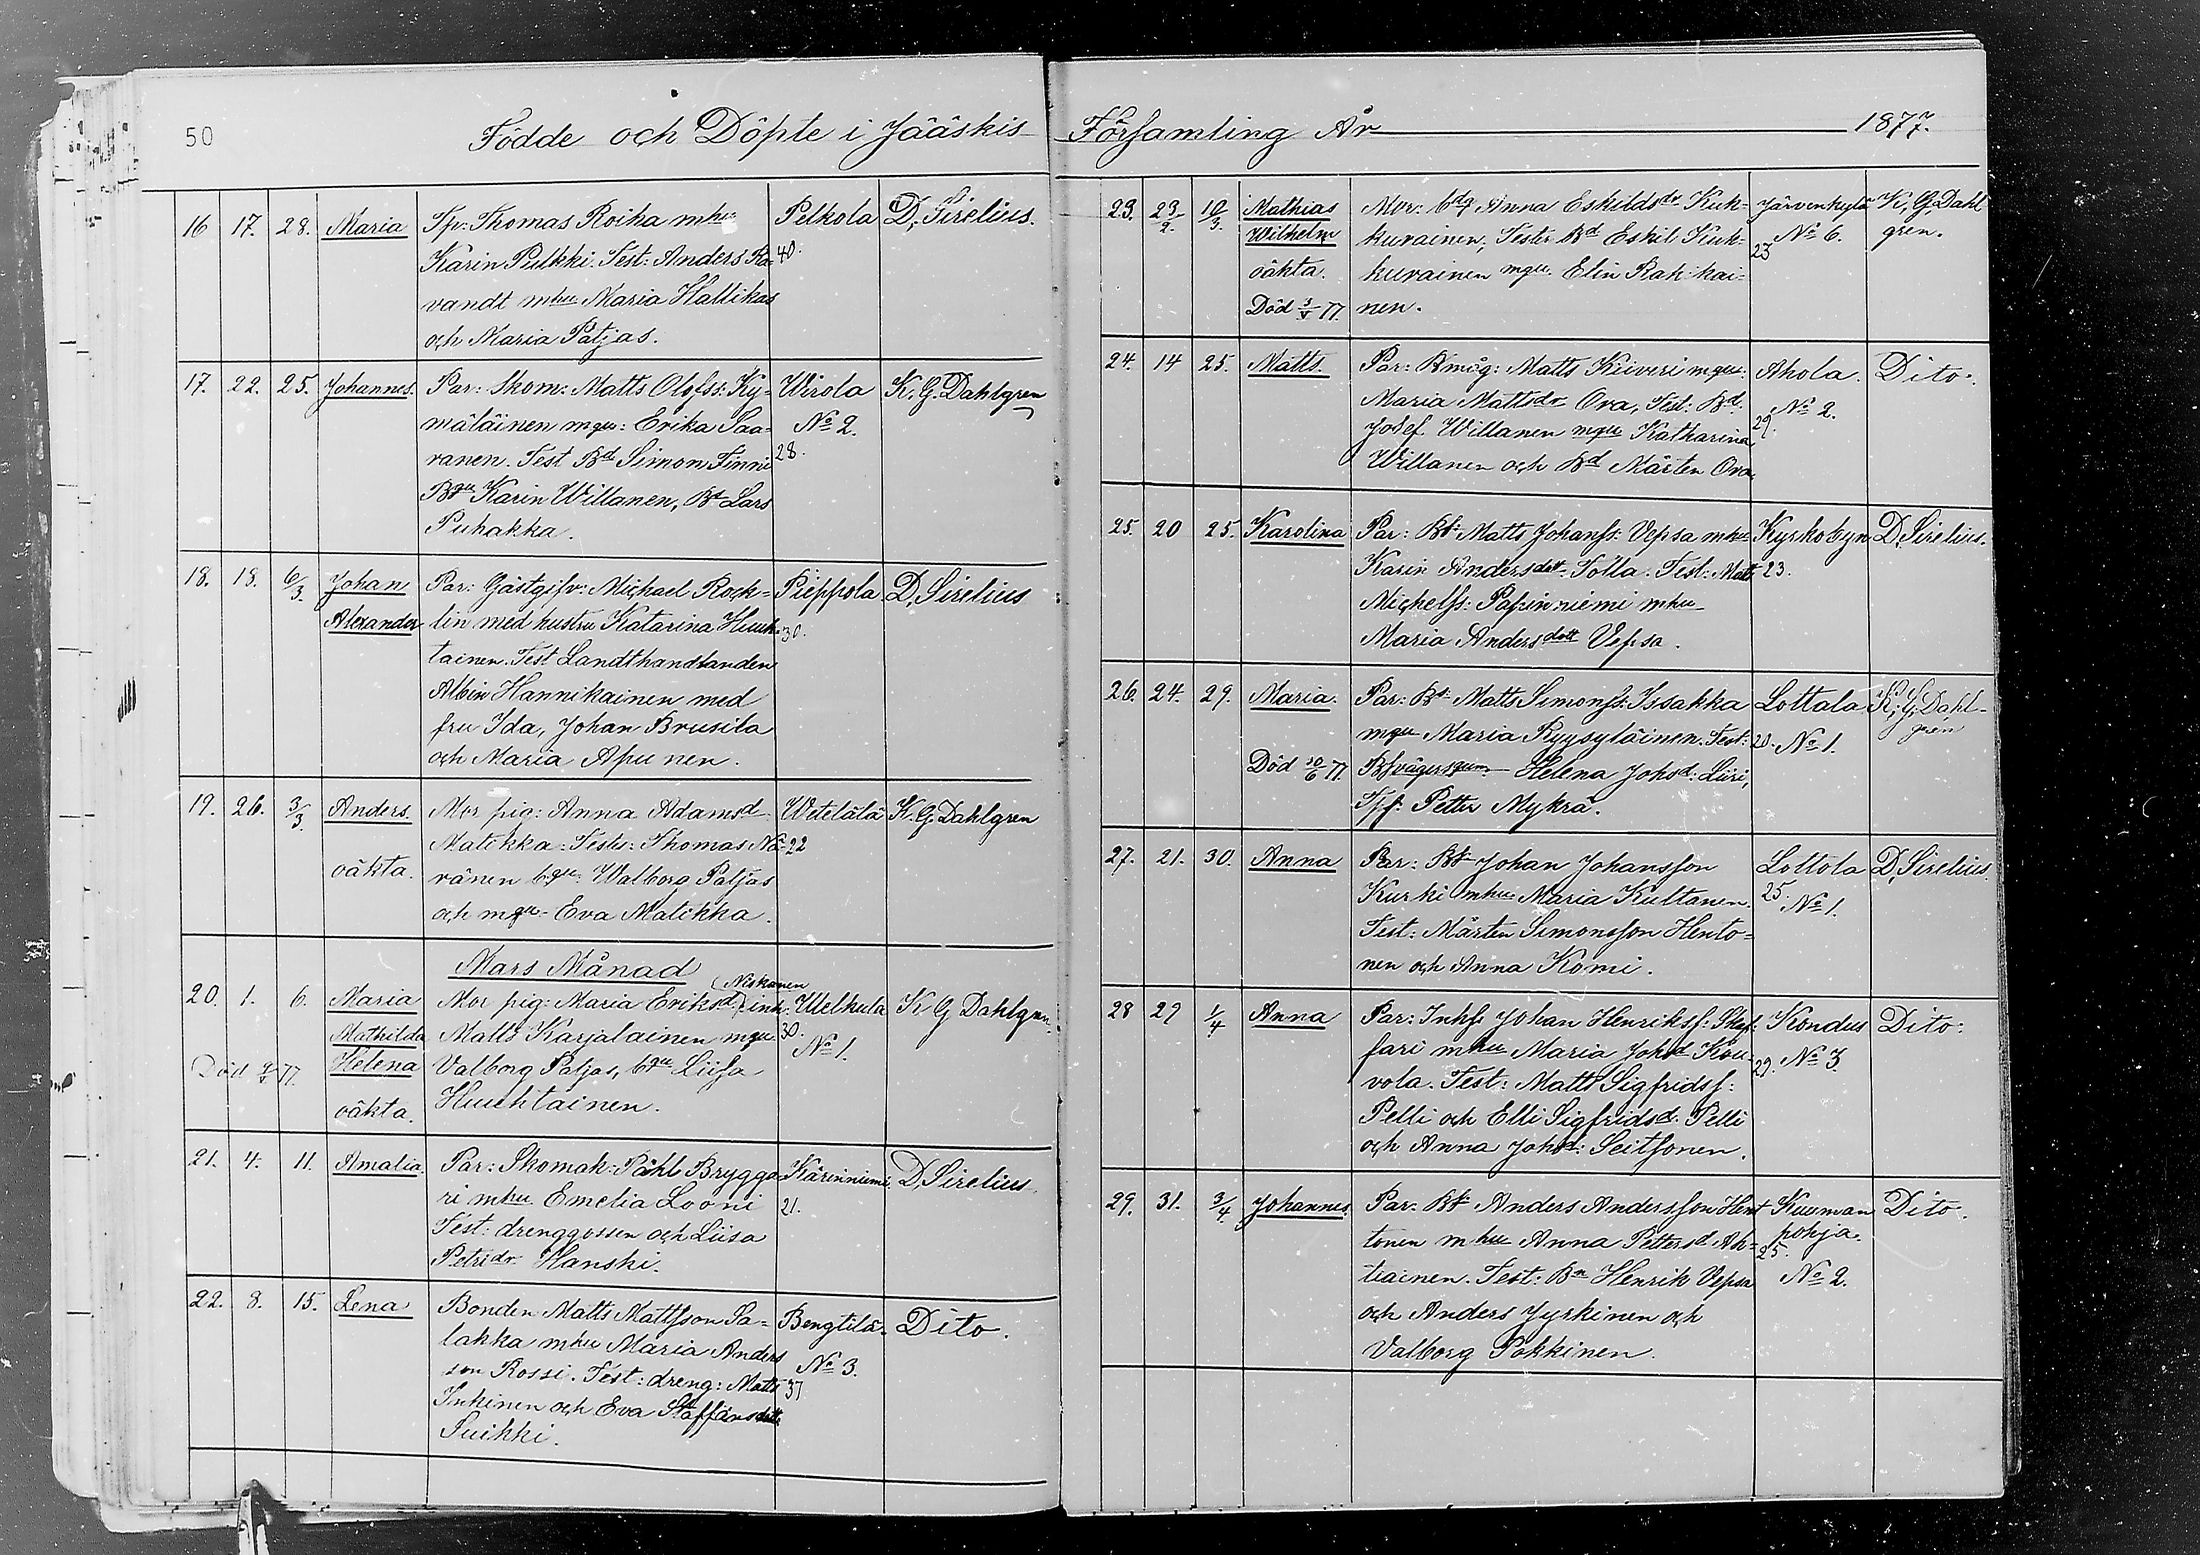 50
Födde och Döpte i Jääskis Församling År 1877.
16 17. 28. Maria Sp: Thomas Roiha mhu Pelkola D. Sirelius.
Karin Pulkki. Test: Anders Ka= 40.
vandt mhu Maria Hallikas
och Maria Patjas.
17. 22. 25. Johannes. Par: Skom: Matts Olofss: Ky= Wirola K. G. Dahlgren
mäläinen mqu: Erika Saa= No 2.
ranen. Test Bd Simon Finni 28.
Bqu Karin Willanen, Bd Lars
Puhakka.
18. 13. 6/3. Johan Par: Gästgifv: Michael Rock= Pieppola D. Sirelius
Alexander lin med hustru Katarina Huuh= 30.
tainen. Test Landthandlanden
Albin Hannikainen med
fru Ida, Johan Brusila
och Maria Apunen.
19. 26. 3/3. Anders. Mor pig: Anna Adamsd Wetelälä K. G. Dahlgren
Matikka. Test: Thomas Nä= 22
oäkta. vänen bqu. Walborg Patjas
och mqu Eva Matikka.
Mars Månad
(Niskanen
20. 1. 6. Maria Mor pig: Maria Eriksd) inh: Ulelkula K G Dahlgren
Mathilda Matts Karjalainen mqu 30. No 1.
Död 9/V 77. Helena Valborg Patjas, bqu Liisa
oäkta. Huuhtainen.
21. 4. 11. Amalia. Par: Skomak: Påhl Brygga= Kärinniemi. D. Sirelius.
ri mhu Emelia Looni 21.
Test: drenggossen och Liisa
Petridr Hanski.
22. 8. 15. Lena Bonden Matts Mattsson Sa= Bengtilä. Dito.
lakka mhu Maria Anders No 3.
son Rossi. Test: dreng: Matts 37
Inkinen och Eva Staffansdott.
Suikki.
23. 23/2. 10/3. Mathias Mor: bdg Anna Eskildsdr Kuk= Järvenkylä K, G, Dahl
Wilhelm kurainen, Test: Bd Eskil Kuk= 23 No 6. gren.
oäkta. kurainen mqu. Elin Rahikai=
Död 3/V 77. nen.
24. 14 25. Matts. Par: Bmåg: Matts Kiiveri mqu: Ahola. Dito.
Maria Mattsdr Ora, Test: Bd. No 2.
Josef Willanen mqu Katharina 29.
Willanen och Bd Mårten Ora.
25. 20 25. Karolina Par: Bd Matts Johanss: Vepsa mhu Kyrkobyn D. Sirelius.
Karin Andersdott. Tölla. Test: Matts 23.
Michelss: Passinniemi mhu
Maria Andersdott Vepsa.
26. 24. 29. Maria. Par: Bd Matts Simonss: Issakka Lottala K, G, Dahl=
mqu Maria Ryysyläinen. Test: 20. No 1. gren
Död 30/6 77. Helena Johsd: Liiri,
Petter Mykrä.
27. 21. 30. Anna Par: Bd Johan Johansson Lottola D. Sirelius.
Kurki mhu Maria Kultanen. 25. No 1.
Test: Mårten Simonsson Hento=
nen och Anna Komi.
28 27 1/4 Anna Par: Inhs Johan Henrikss: Skaf= Kondus Dito.
fari mhu Maria Johsd Kou= 29. No 3
vola. Test: Matts Sigfridss:
Pelli och Elli Sigfridsd: Pelli
och Anna Johsd: Seitsonen.
29. 31. 3/4. Johannes. Par: Bd Anders Andersson Hent Kuurman Dito.
tonen mhu Anna Pettersd Ah= pohja.
tiainen. Test: Bn Henrik Vepsa 25. No 2.
och Anders Jyrkinen och
Valborg Pokkinen.